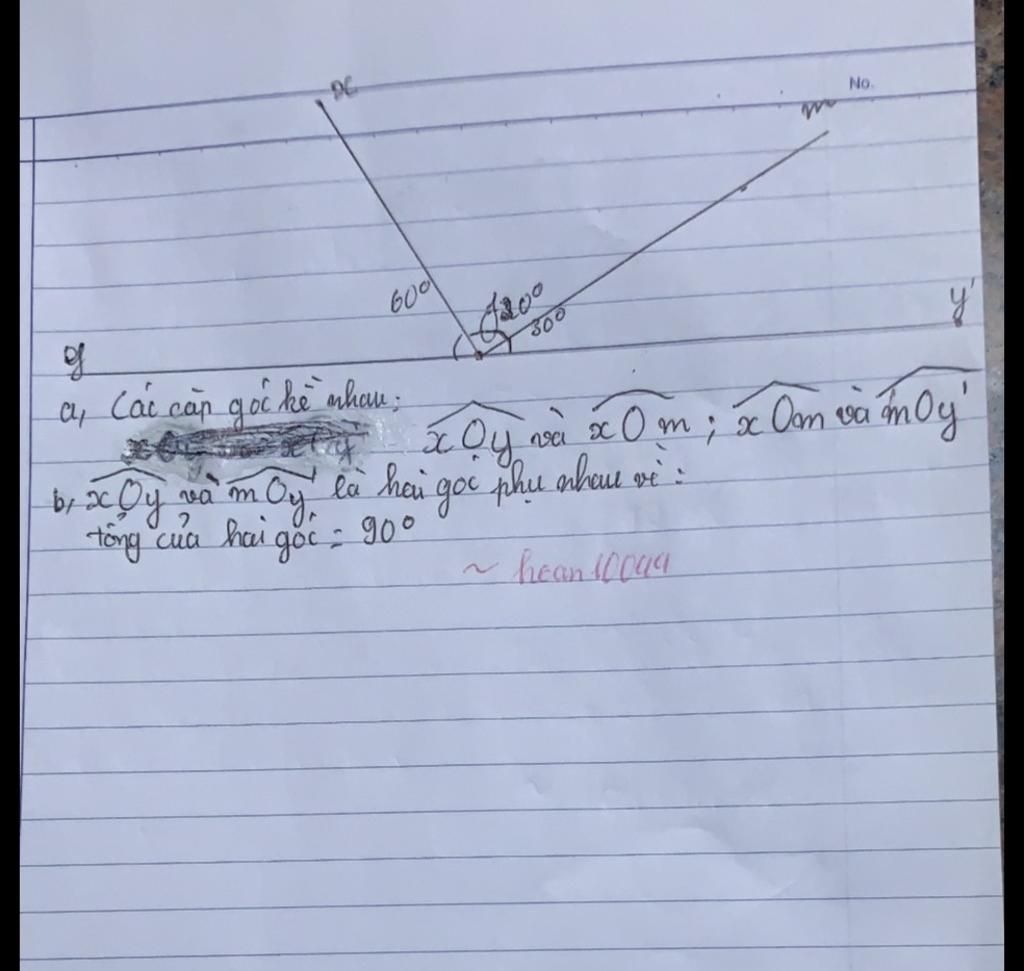 x
No.
m
60⁰
120⁰
30⁰
y
y'
a, Các cặp góc kề nhau:
xOy và xOm ; xOm và mOy'
b, xOy và mOy' là hai góc phụ nhau vì :
tổng của hai góc = 90⁰